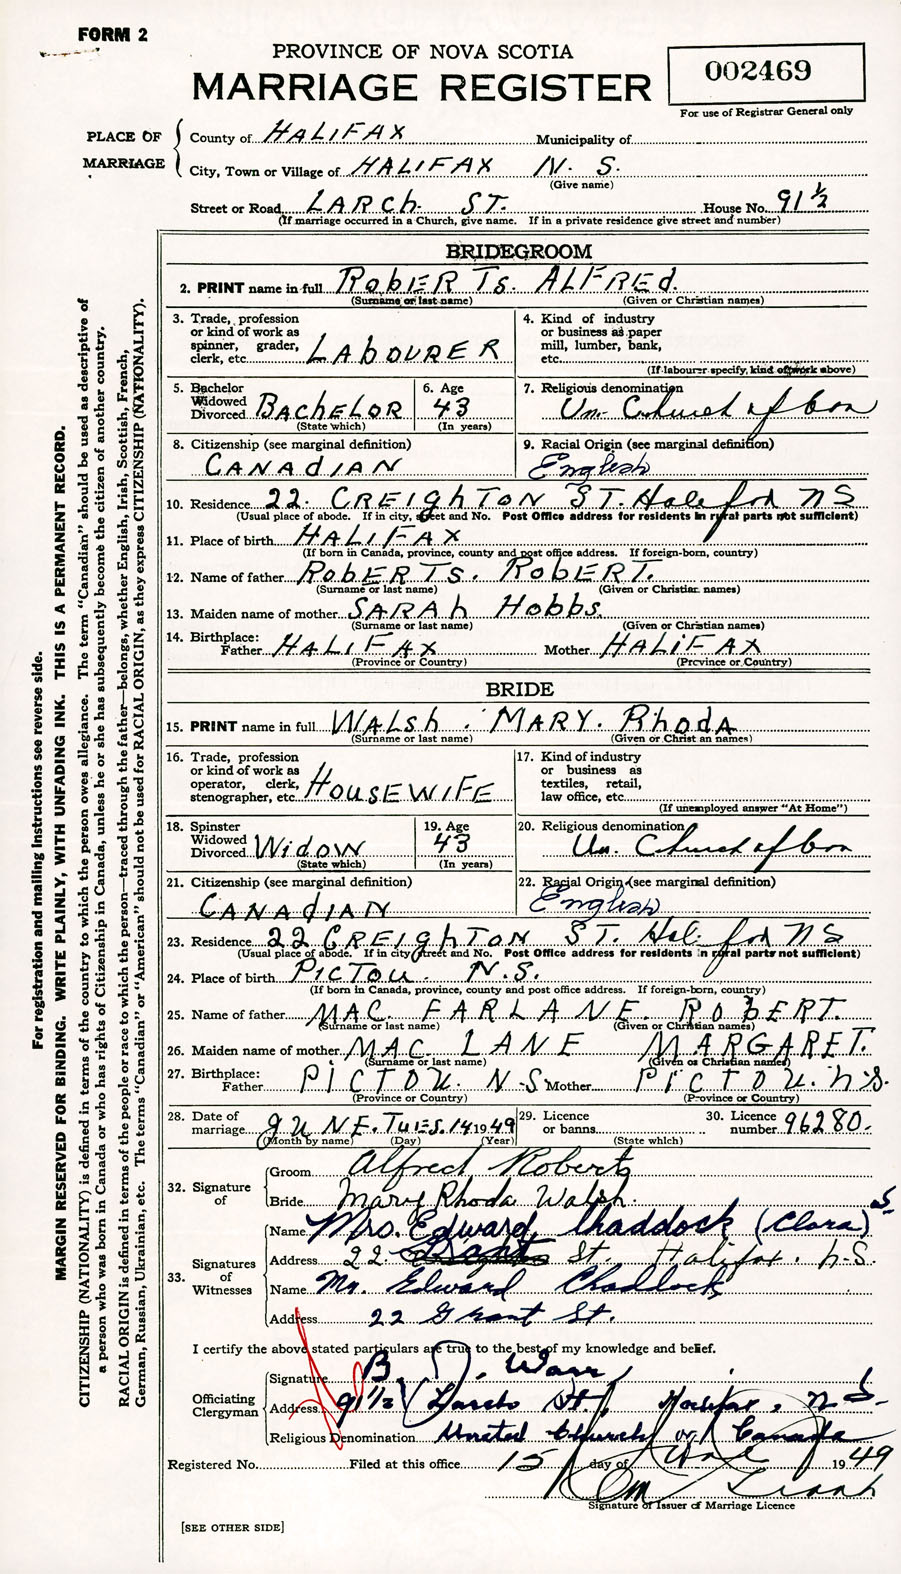 FORM 2
PROVINCE OF NOVA SCOTIA
MARRIAGE REGISTER
002469
For use of Registrar General only
PLACE OF MARRIAGE
County of HALIFAX Municipality of
City, Town or Village of HALIFAX N. S.
(Give name)
Street or Road LARCh. ST. House No. 91 ½
(If marriage occurred in a Church, give name. If in a private residence give street and number)
BRIDEGROOM
2. PRINT name in full RobERTs. ALFREd.
(Surname or last name) (Given or Christian names)
3. Trade, profession or kind of work as spinner, grader, clerk, etc. LAbOURER
4. Kind of industry or business as paper mill, lumber, bank, etc.
(If labourer specify, kind of work above)
5. Bachelor Widowed Divorced BACHELOR
(State which)
6. Age 43
(In years)
7. Religious denomination Un. Church of Can
8. Citizenship (see marginal definition)
CANAdIAN
9. Racial Origin (see marginal definition)
English
10. Residence 22. CREIghTON ST. Halifax NS
(Usual place of abode. If in city, street and No. Post Office address for residents in rural parts not sufficient)
11. Place of birth HALIFAX
(If born in Canada, province, county and post office address. If foreign-born, country)
12. Name of father RobERTS. RobERT.
(Surname or last name) (Given or Christian names)
13. Maiden name of mother SARAh Hobbs.
(Surname or last name) (Given or Christian names)
14. Birthplace:
Father HALIFAX Mother HALIFAX
(Province or Country) (Province or Country)
BRIDE
15. PRINT name in full WALSh. MARY. Rhoda
(Surname or last name) (Given or Christian names)
16. Trade, profession or kind of work as operator, clerk, stenographer, etc. HOUSEWIFE
17. Kind of industry or business as textiles, retail, law office, etc.
(If unemployed answer "At Home")
18. Spinster Widowed Divorced WidOW
(State which)
19. Age 43
(In years)
20. Religious denomination Un. Church of Can
21. Citizenship (see marginal definition)
CANAdIAN
22. Racial Origin (see marginal definition)
English
23. Residence 22 CREIghTON ST. Halifax NS
(Usual place of abode. If in city street and No. Post Office address for residents in rural parts not sufficient)
24. Place of birth PICTOU. N.S.
(If born in Canada, province, county and post office address. If foreign-born, country)
25. Name of father MAC FARLANE. RObERT.
(Surname or last name) (Given or Christian names)
26. Maiden name of mother MAC LANE MARGARET.
(Surname or last name) (Given or Christian names)
27. Birthplace:
Father PICTOU. N-S Mother PICTOU. N.S.
(Province or Country) (Province or Country)
28. Date of marriage JUNE. TUES. 14 1949
(Month by name) (Day) (Year)
29. Licence or banns
(State which)
30. Licence number 96280.
32. Signature of
Groom Alfred Roberts
Bride Mary Rhoda Walsh.
33. Signatures of Witnesses
Name Mrs. Edward Chaddock (Clara)
Address 22 Grant St Halifax. N-S.
Name Mr. Edward Chaddock
Address 22 Grant St.
I certify the above stated particulars are true to the best of my knowledge and belief.
Officiating Clergyman
Signature B J. Warr
Address 91 ½ Larch St., Halifax, N S.
Religious Denomination United Church of Canada
Registered No. Filed at this office 15 day of 1949
Signature of Issuer of Marriage Licence
[SEE OTHER SIDE]
For registration and mailing instructions see reverse side.
MARGIN RESERVED FOR BINDING. WRITE PLAINLY, WITH UNFADING INK. THIS IS A PERMANENT RECORD.
CITIZENSHIP (NATIONALITY) is defined in terms of the country to which the person owes allegiance. The term "Canadian" should be used as descriptive of
a person who was born in Canada or who has rights of Citizenship in Canada, unless he or she has subsequently become the citizen of another country.
RACIAL ORIGIN is defined in terms of the people or race to which the person—traced through the father—belongs, whether English, Irish, Scottish, French,
German, Russian, Ukrainian, etc. The terms "Canadian" or "American" should not be used for RACIAL ORIGIN, as they express CITIZENSHIP (NATIONALITY).